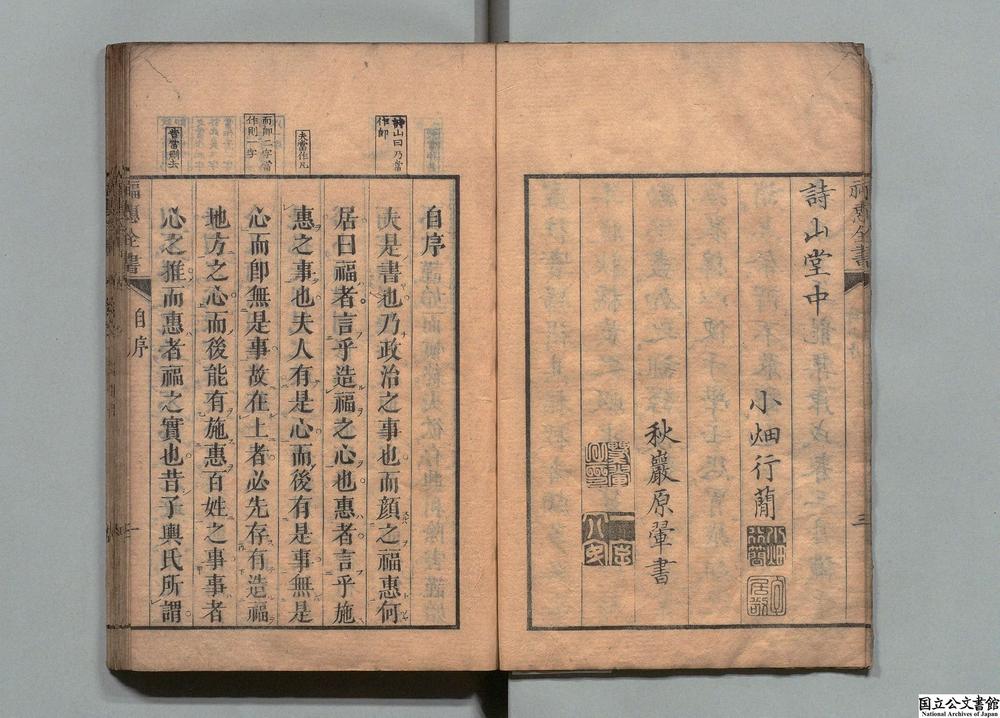 詩山堂中
小畑行蕳
秋巖原翬書
福惠全書
自序
詩山曰乃當
作卽
夫當作凡
而卽二字當
作則一字
昔當刪去
自序
夫是書也乃政治之事也而顔之福惠何
居曰福者言乎造福之心也惠者言乎施
惠之事也夫人有是心而後有是事無是
心而卽無是事故在上者必先存有造福
地方之心而後能有施惠百姓之事事者
心之推而惠者福之實也昔子輿氏所謂
国立公文書館
National Archives of Japan